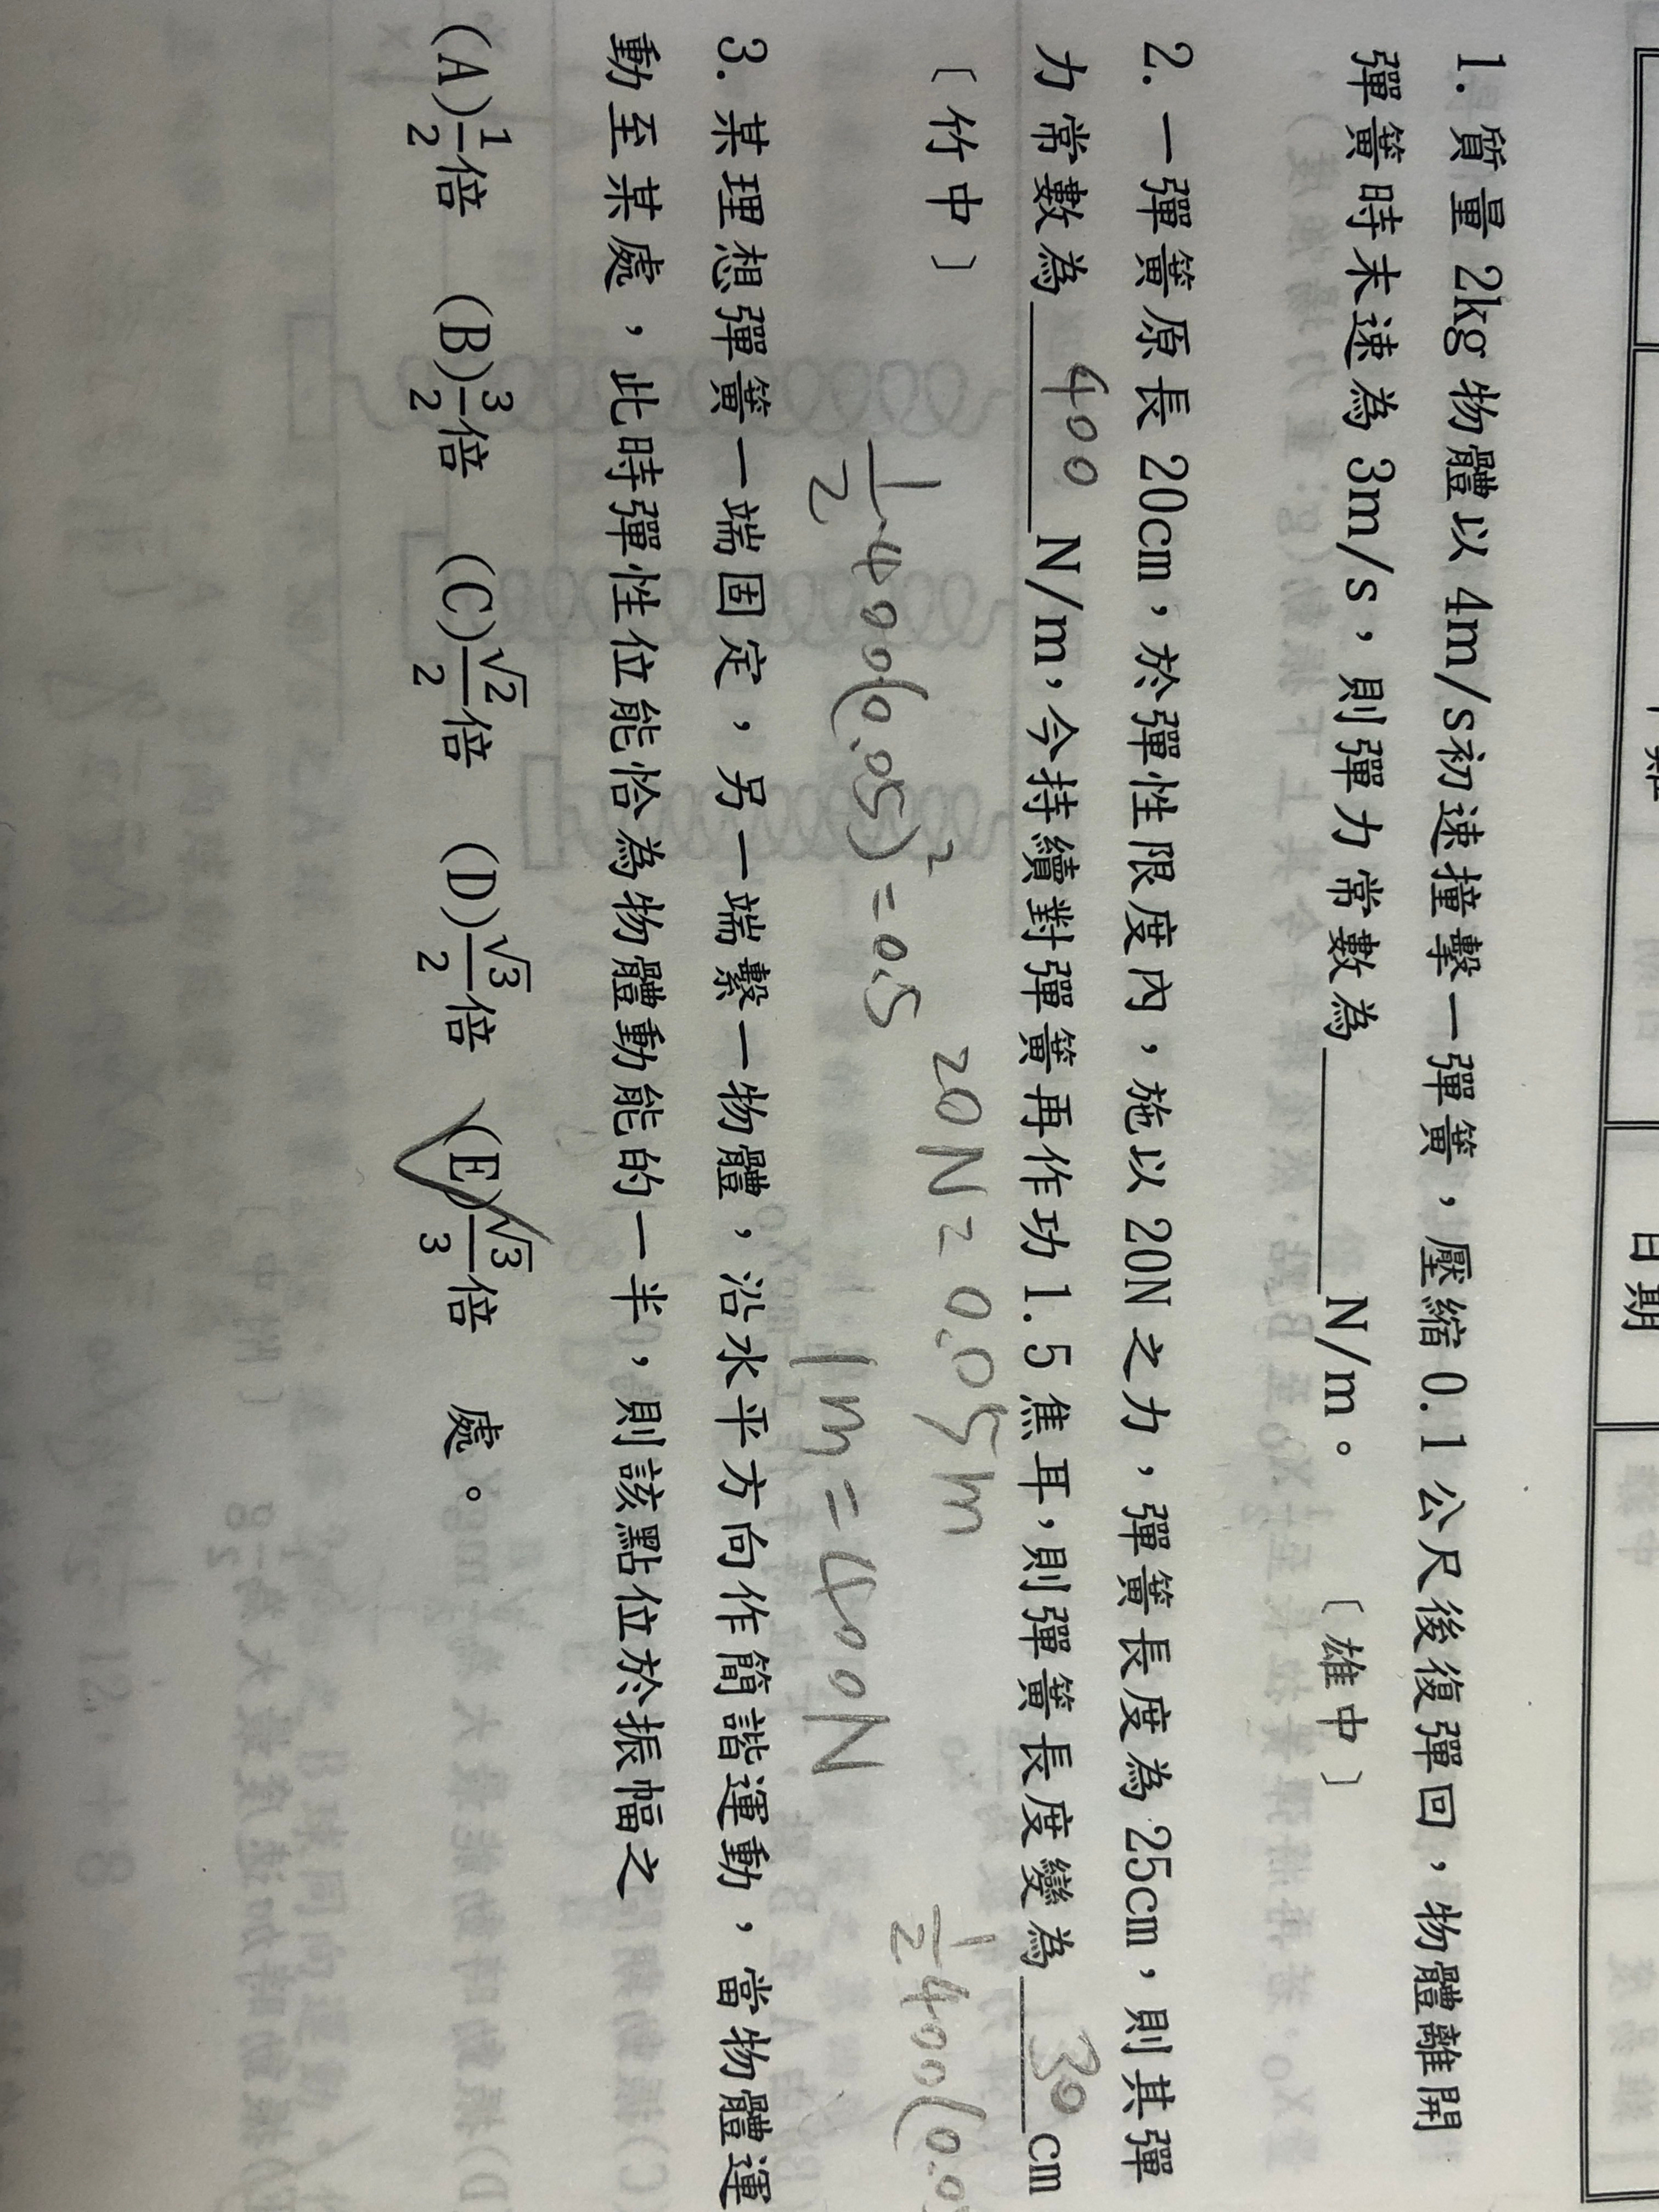 日期
1. 質量 2kg 物體以 4m/s初速撞擊一彈簧，壓縮 0.1 公尺後復彈回，物體離開
彈簧時末速為 3m/s，則彈力常數為______N/m。〔雄中〕
2. 一彈簧原長 20cm，於彈性限度內，施以 20N 之力，彈簧長度為 25cm，則其彈
力常數為 400 N/m，今持續對彈簧再作功 1.5 焦耳，則彈簧長度變為 30 cm
〔竹中〕
20N = 0.05m
1/2 400(0.0
1/2 · 400(0.05)² = 0.5
1m = 400N
3. 某理想彈簧一端固定，另一端繫一物體，沿水平方向作簡諧運動，當物體運
動至某處，此時彈性位能恰為物體動能的一半，則該點位於振幅之
(A) 1/2 倍 (B) 3/2 倍 (C) √2/2 倍 (D) √3/2 倍 (E) √3/3 倍 處。